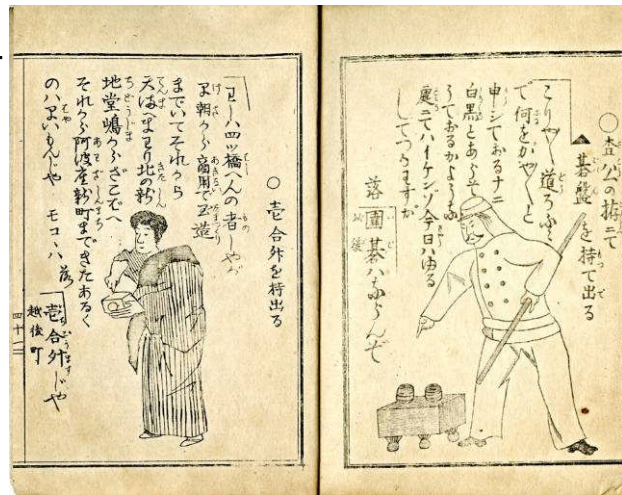 ○査公の拵ニて
碁盤を持て出る
こりや〳〵道ろふ
で何をかや〳〵と
申シておるナニ
白黒とあらそ
うておるかよろしふ
庭ニてハイケンゾ今日ハゆる
してつかはすが
落 圍碁ハならんぞ
○壱合升を持出る
わしハ四ツ橋へんの者じやが
今朝から商用で玉造
までいてそれから
天満へまわり北の新
地堂嶋からざこばへ
それから阿波座新町まできたあるく
のハよいもんじや モコヽハ 落
壱合升じや
越後町
四十二